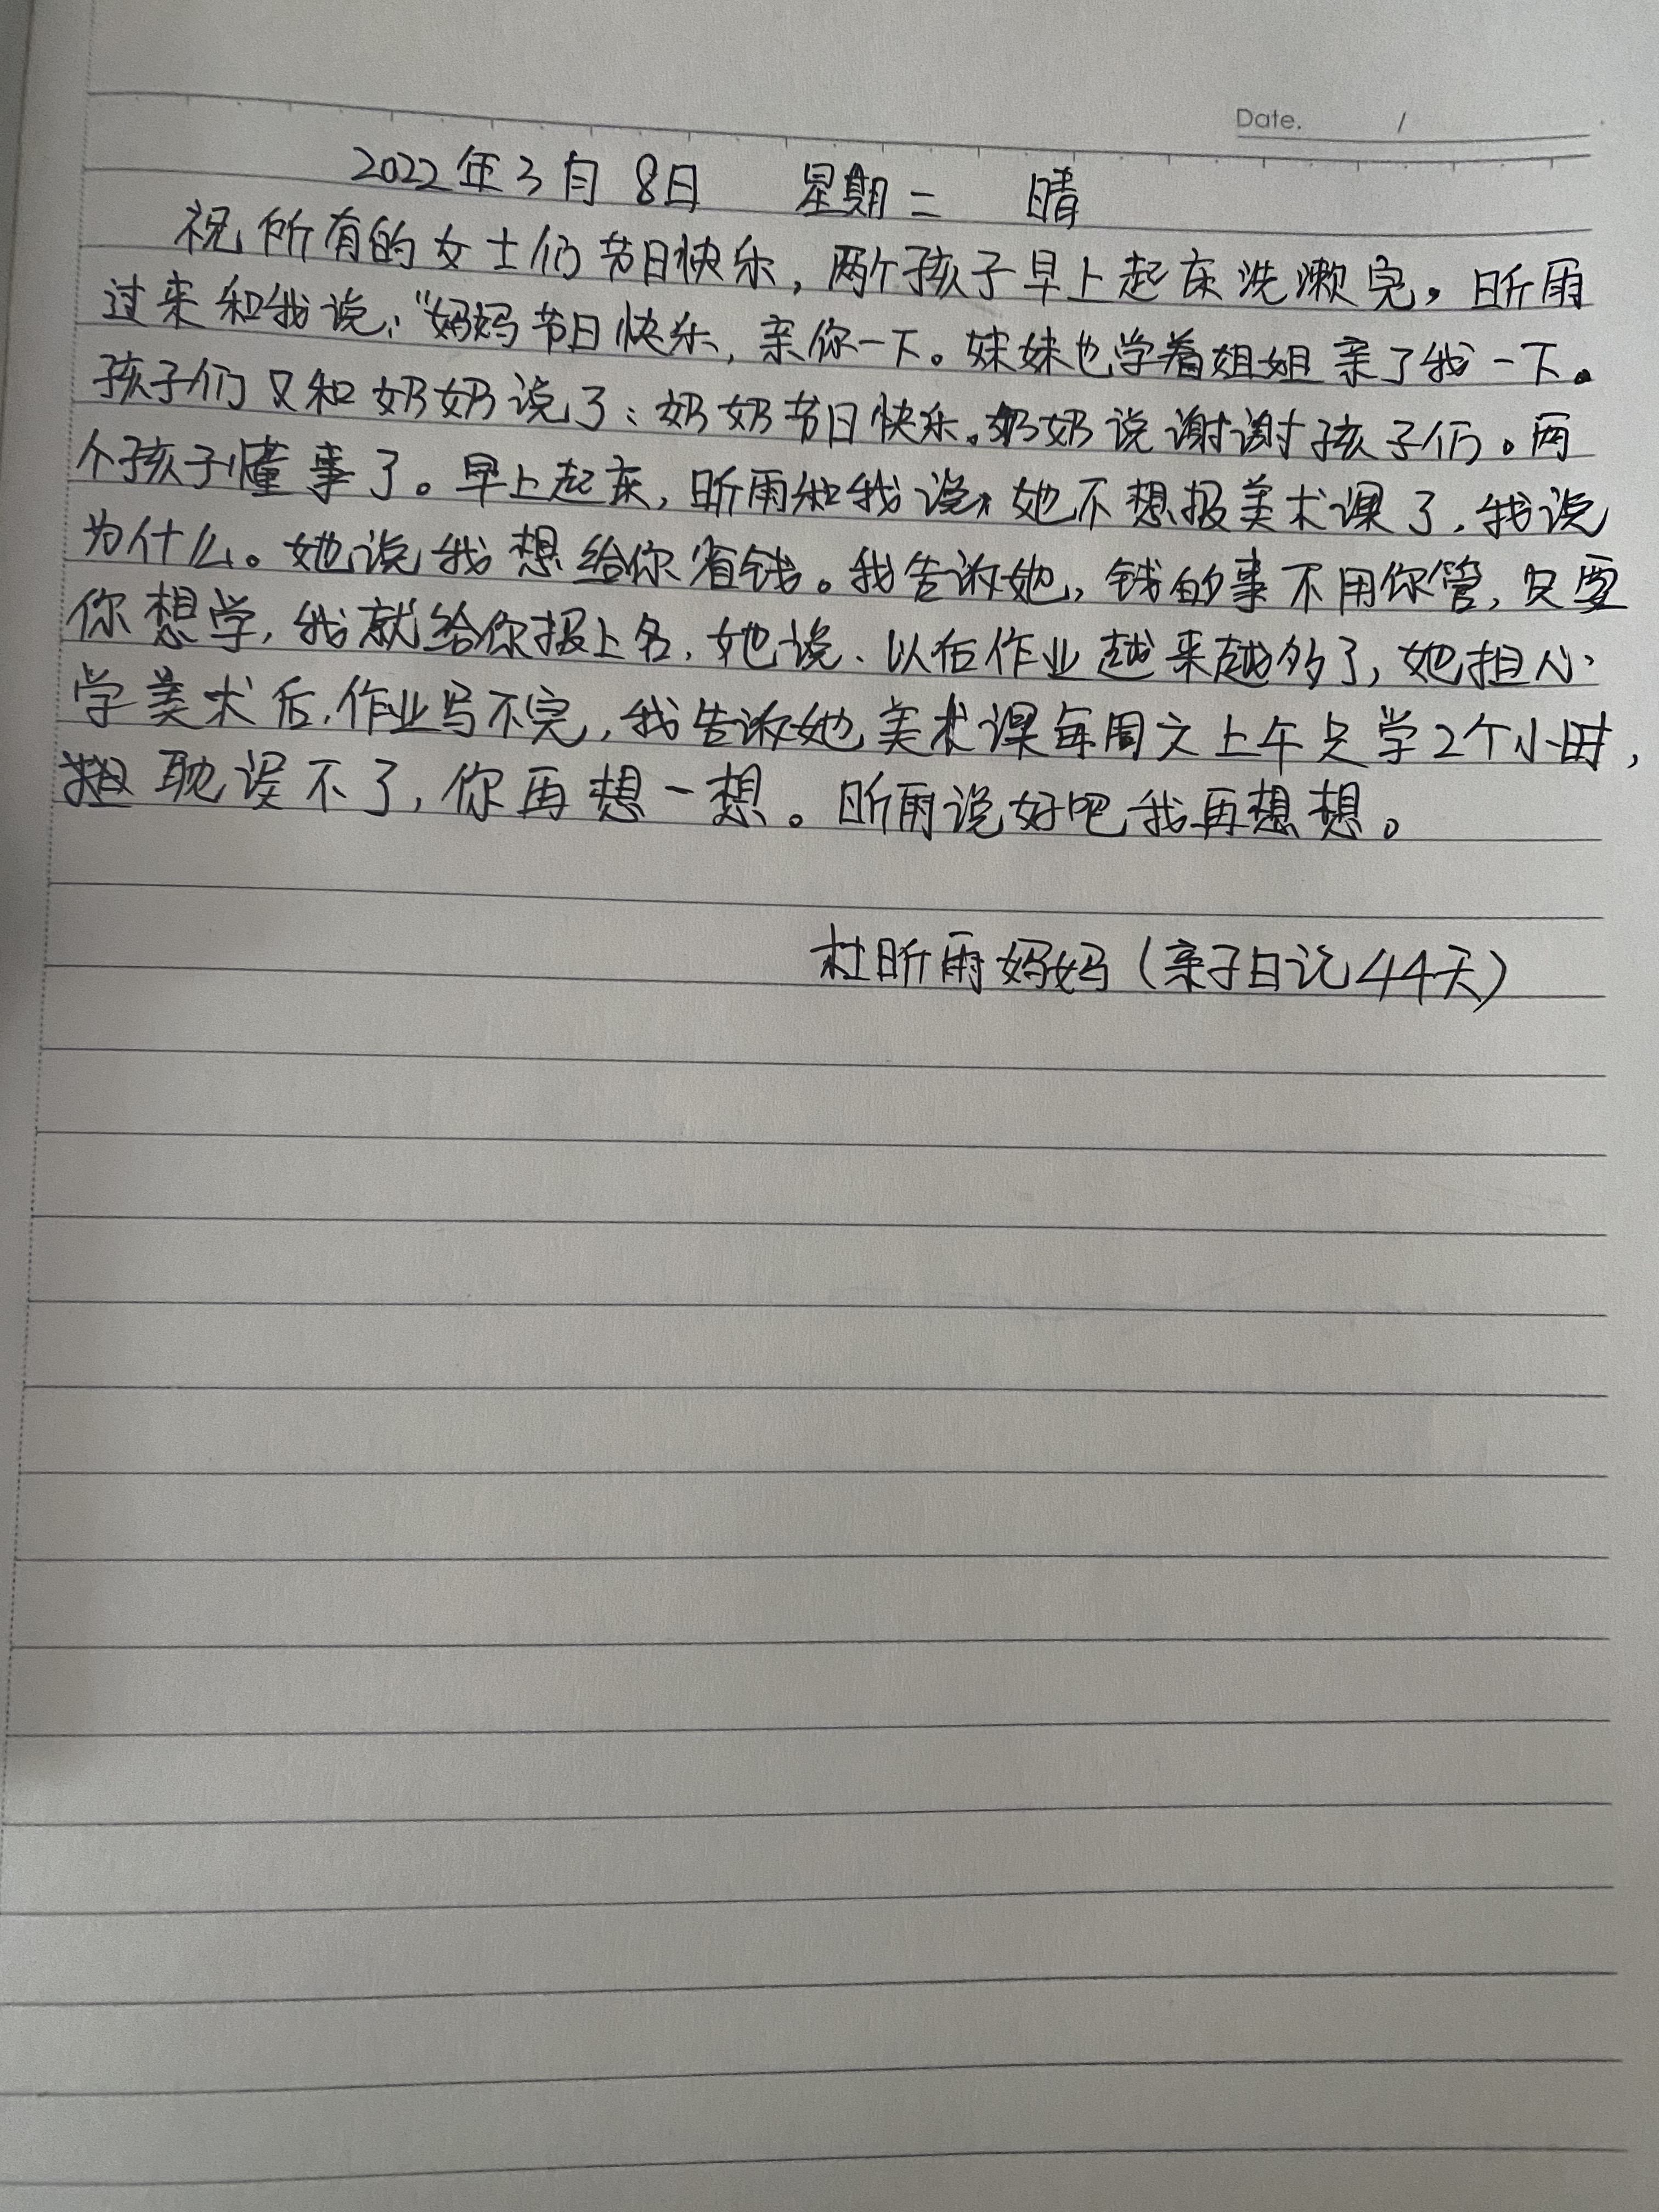 Date. /
2022年3月8日 星期二 晴
祝所有的女士们节日快乐，两个孩子早上起床洗漱完，昕雨
过来和我说，“妈妈节日快乐，亲你一下。妹妹也学着姐姐亲了我一下。
孩子们又和奶奶说了：奶奶节日快乐。奶奶说谢谢孩子们。两
个孩子懂事了。早上起床，昕雨和我说，她不想报美术课了，我说
为什么。她说我想给你省钱。我告诉她，钱的事不用你管，只要
你想学，我就给你报上名，她说、以后作业越来越多了，她担心
学美术后，作业写不完，我告诉她美术课每周六上午只学2个小时，
耽误不了，你再想一想。昕雨说好吧我再想想。
杜昕雨妈妈（亲子日记44天）